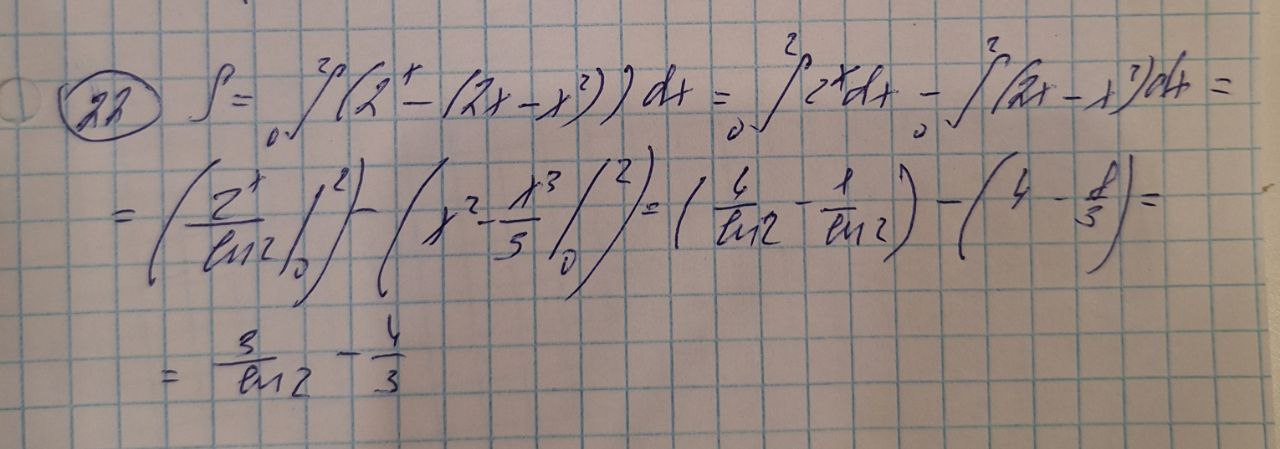 22 S = ₀∫² (2ˣ − (2x − x²)) dx = ₀∫² 2ˣ dx − ₀∫² (2x − x²) dx =
= (2ˣ/ln 2 |₀²) − (x² − x³/3 |₀²) = (4/ln 2 − 1/ln 2) − (4 − 8/3) =
= 3/ln 2 − 4/3